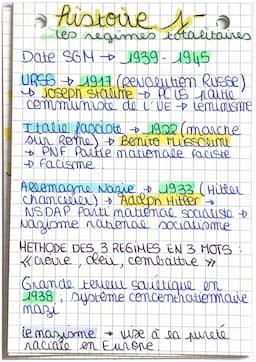 histoire
les régimes totalitaires
Date SGM → 1939 - 1945
URSS → 1917 (révolution Russe)
→ Joseph Staline → PCUS partie
communiste de l'UE → léninisme
Italie fasciste → 1922 (marche
sur Rome) → Benito Mussolini
→ PNF Partie nationale faciste
→ Facisme
Allemagne Nazie → 1933 (Hitler
chancelier) → Adolph Hitler →
NSDAP Parti national socialiste →
Nazisme national socialisme
METHODE DES 3 REGIMES EN 3 MOTS :
« croire, obéir, combattre »
Grande terreur
1938, système concentrationnaire
nazi
le nazisme → vise à la pureté
raciale en Europe